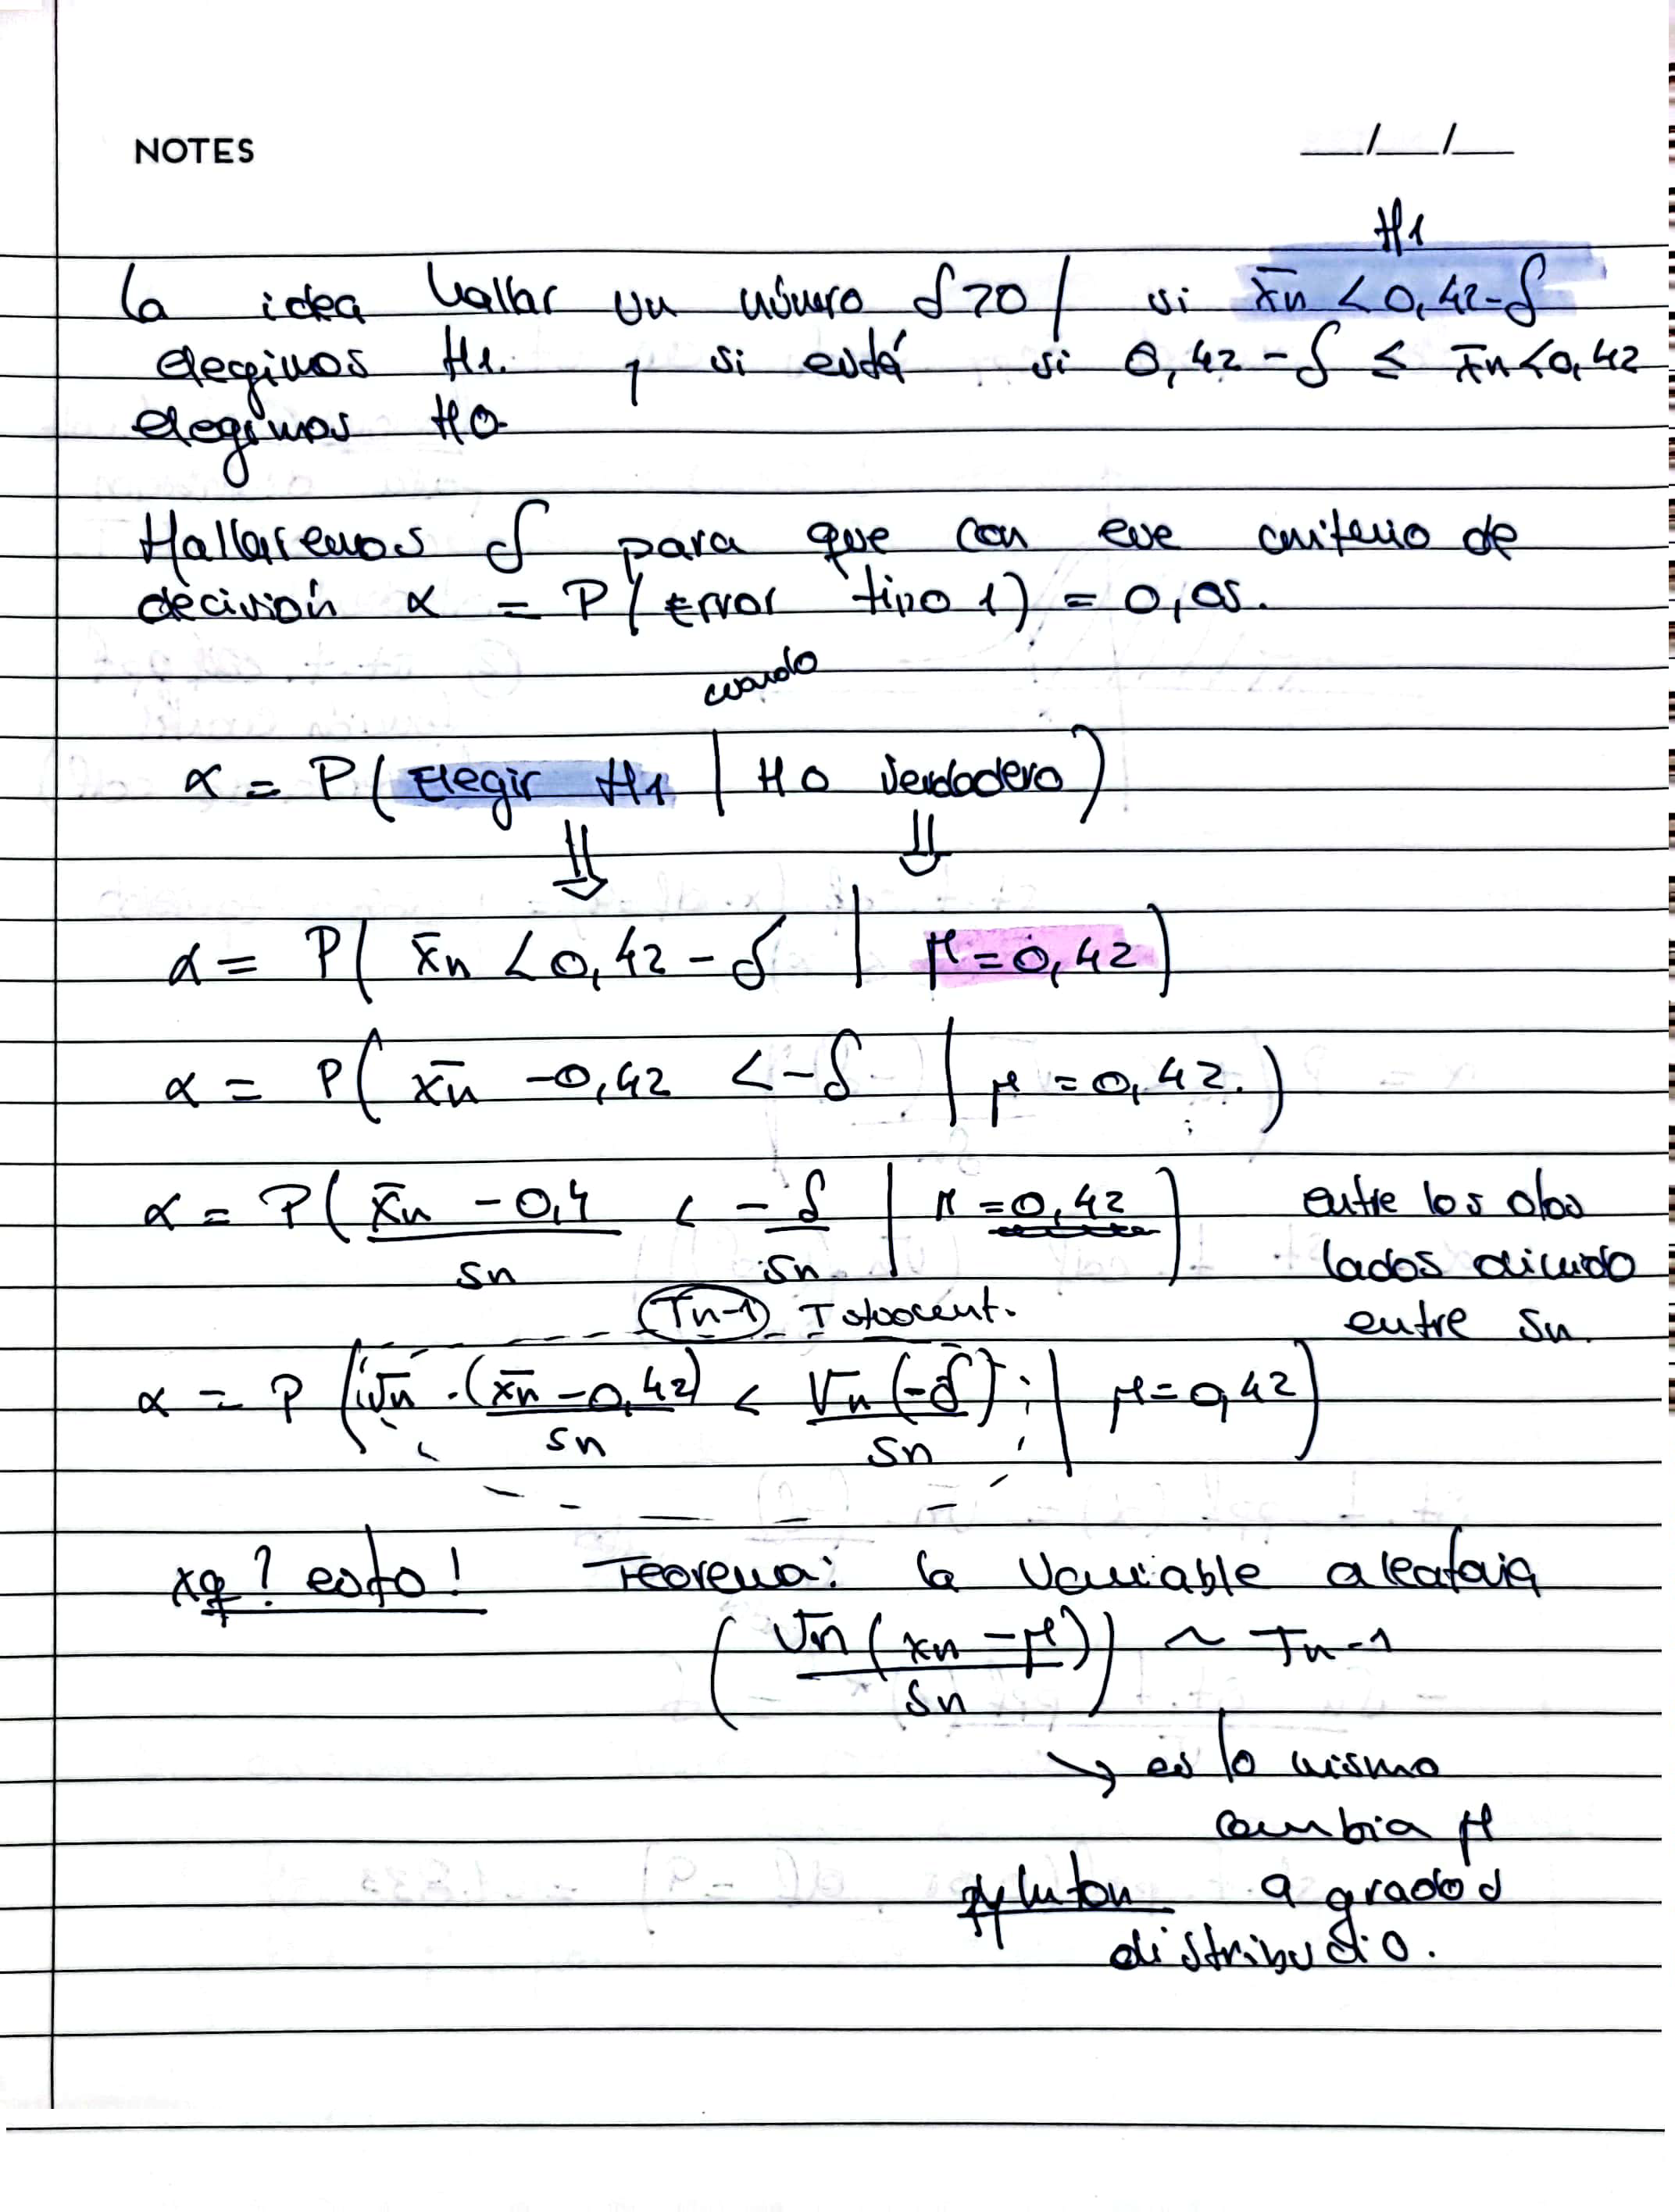 NOTES __/__/__
H1
la idea hallar un número δ>0 / si x̄n < 0,42-δ
elegimos H1. y si está si 0,42-δ ≤ x̄n<0,42
elegimos H0.
Hallaremos δ para que con ese criterio de
decisión α = P(Error tipo 1) = 0,05.
cuando
α = P(Elegir H1 | H0 verdadero)
⇓ ⇓
α = P( x̄n < 0,42-δ | μ=0,42)
α = P( x̄n -0,42 < -δ | μ=0,42.)
α = P( x̄n - 0,4 / sn < -δ / sn | μ=0,42) entre los dos
lados divido
entre sn.
Tn-1 T
α = P (√n · (x̄n-0,42) / sn < √n (-δ) / sn | μ=0,42)
xq? esto! Teorema: la variable aleatoria
( √n (xn - μ) / sn ) ~ Tn-1
→ es lo mismo
cambia μ
a grados
distribucio.